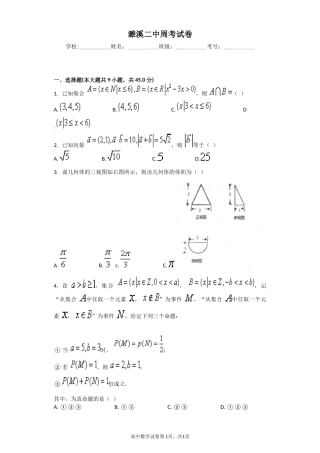 濉溪二中周考试卷
学校:___________姓名:___________班级:___________考号:___________
一、选择题(本大题共 9 小题，共 45.0 分)
1. 已知集合 A={x∈N|x≤6},B={x∈R|x²-3x>0}，则 A∩B=（ ）
A. {3,4,5} B. {4,5,6} C. {x|3<x≤6} D
. {x|3≤x<6}
2. 已知向量 a=(2,1),a·b=10,|a+b|=5√2，则 等于（ ）
A. √5 B. √10 C. 5 D. 25
3. 某几何体的三视图如右图所示，则该几何体的体积为（ ）
正视图 侧视图
俯视图
A. π/6 B. π/3 C. 2π/3 D. π
4. 设 a>b≥1，集合 A={x|x∈Z,0<x<a}，B={x|x∈Z,-b<x<b}，记
“从集合 A 中任取一个元素 x，x∉B”为事件 M，“从集合 A 中任取一个元素
x，x∈B”为事件 N，给定下列三个命题：
① 当 a=5,b=3 时，P(M)=p(N)=1/2；
② 若 P(M)=1，则 a=2,b=1；
③ P(M)+P(N)=1 恒成立.
其中，为真命题的是（ ）
A. ①②③ B. ①② C. ①③ D. ②③
高中数学试卷第1页，共1页